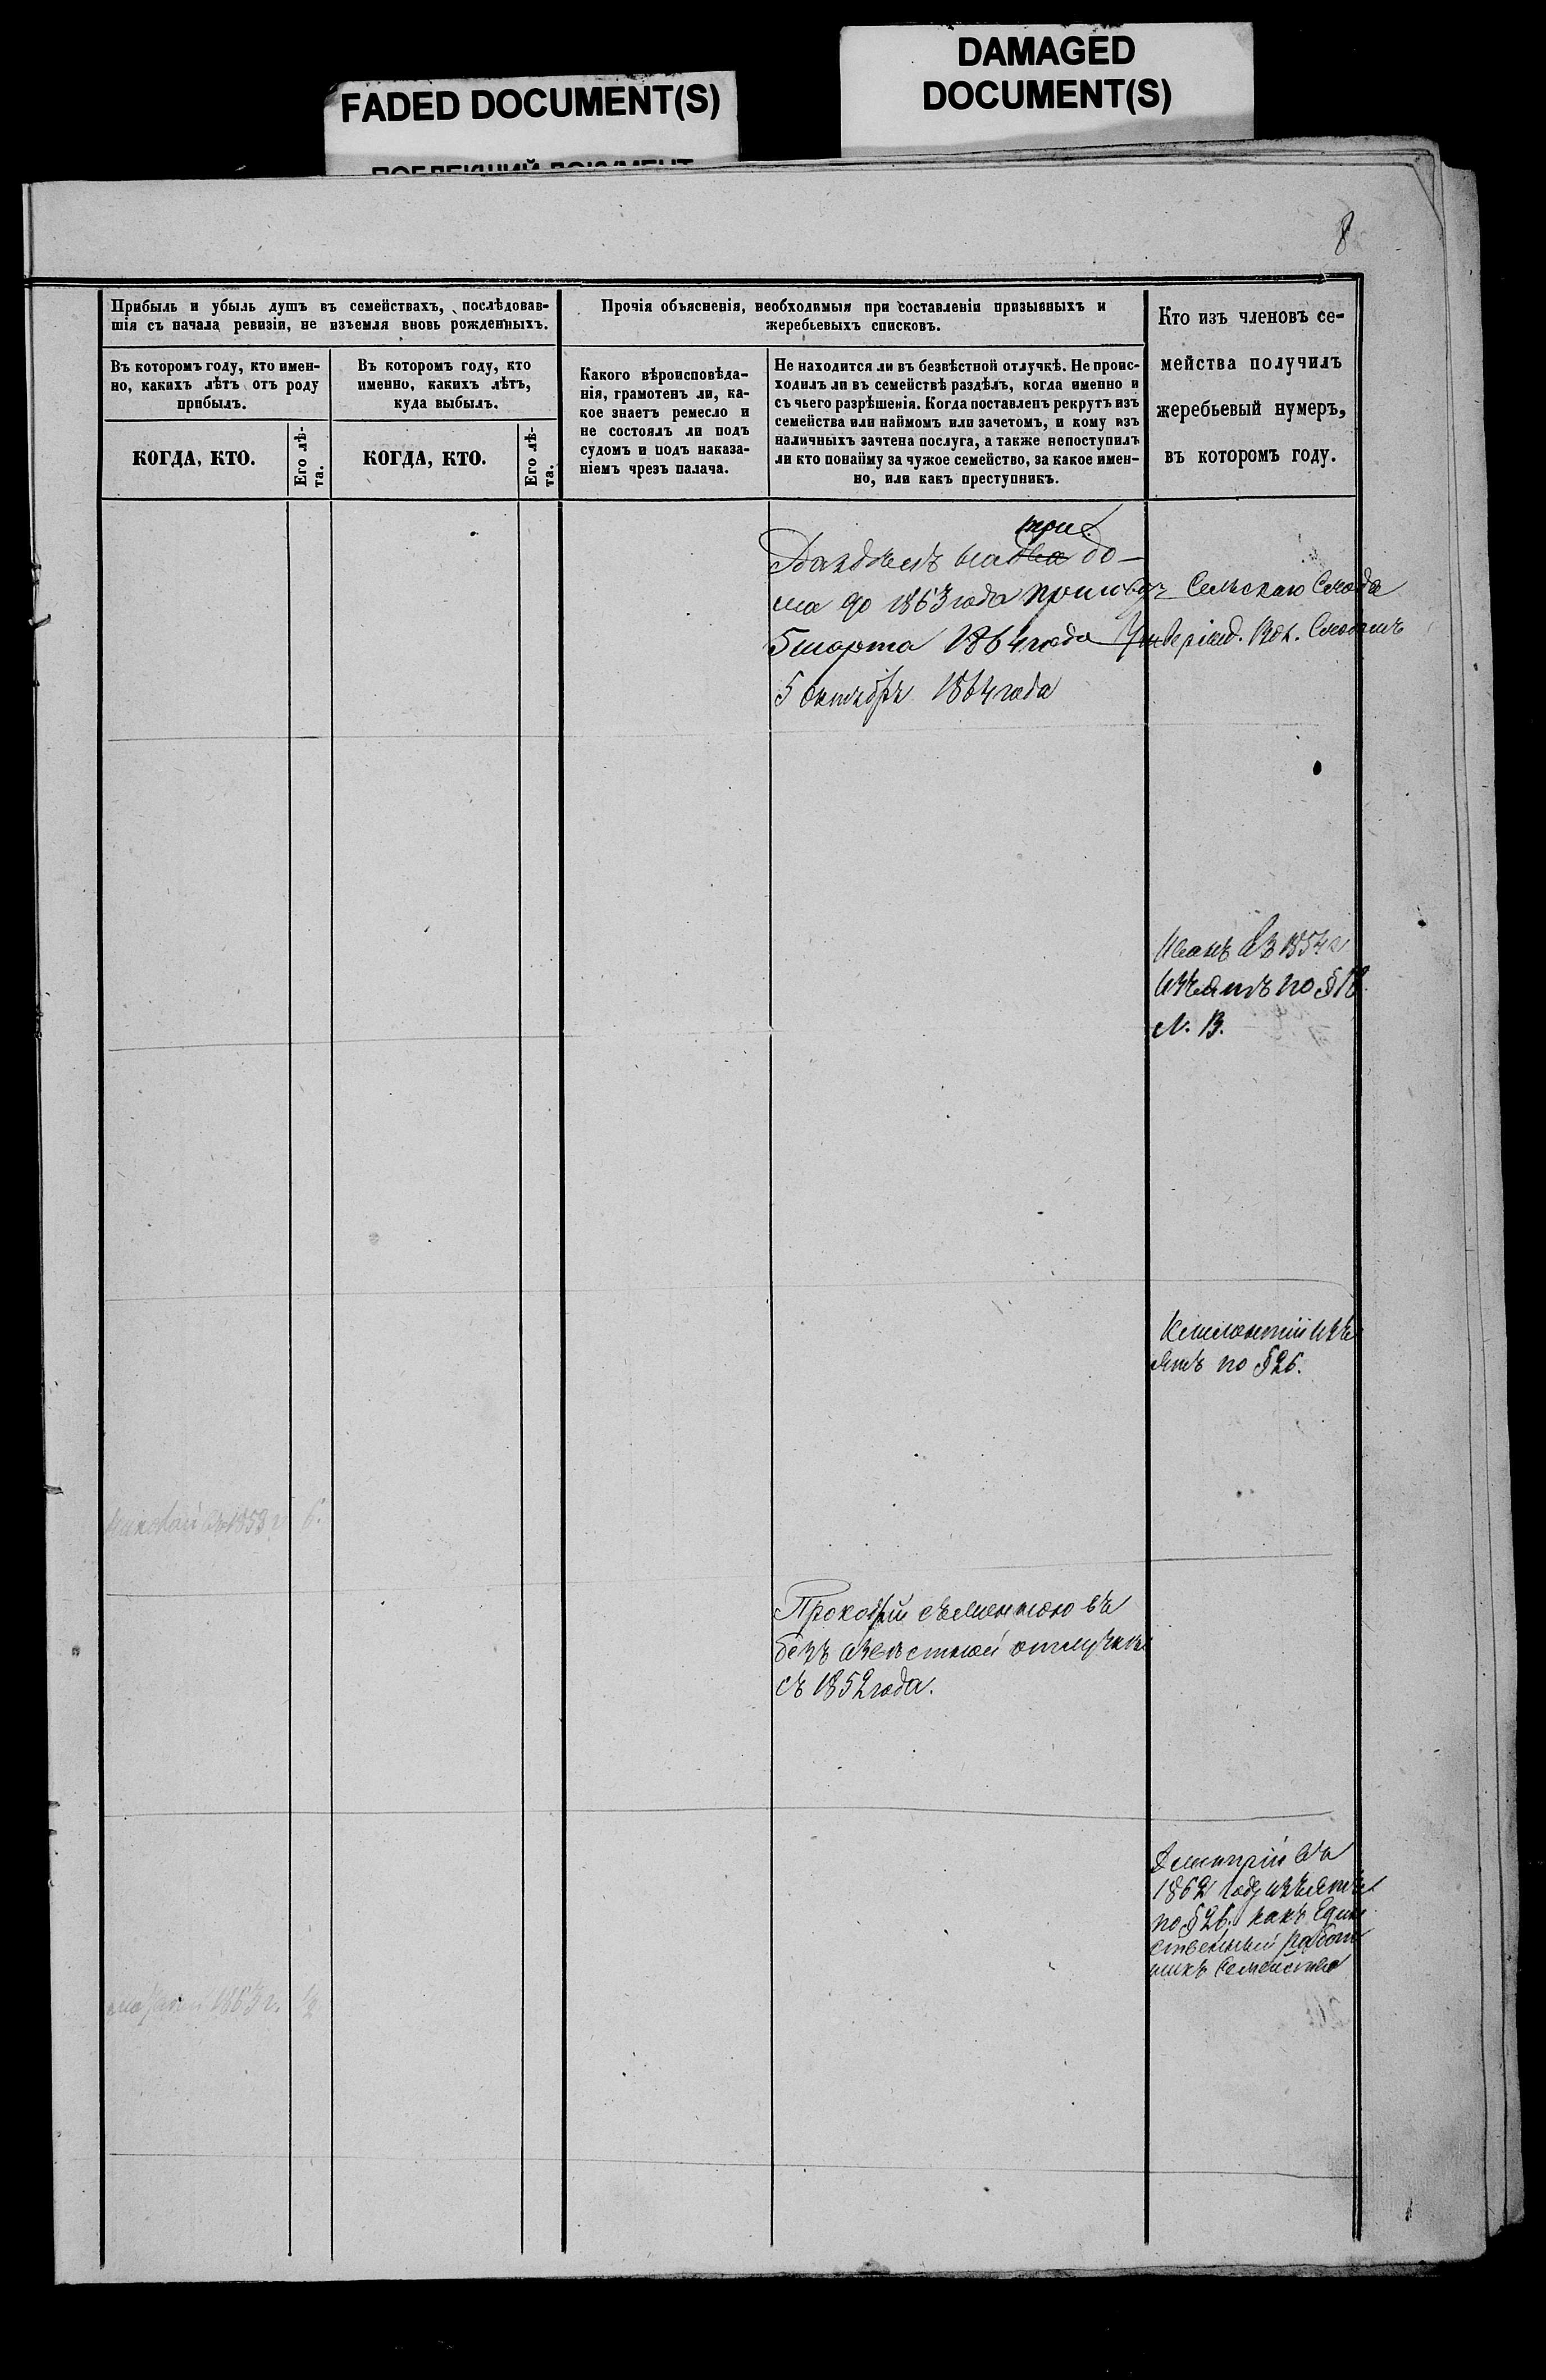 FADED DOCUMENT(S)
DAMAGED
DOCUMENT(S)
8
Прибыль и убыль душъ въ семействахъ, послѣдовав-
шія съ начала ревизіи, не изъемля вновь рожденныхъ.
Въ которомъ году, кто имен-
но, какихъ лѣтъ отъ роду
прибылъ.
КОГДА, КТО.
Его лѣ-
та.
Въ которомъ году, кто
именно, какихъ лѣтъ,
куда выбылъ.
КОГДА, КТО.
Его лѣ-
та.
Прочія объясненія, необходимыя при составленіи призывныхъ и
жеребьевыхъ списковъ.
Какого вѣроисповѣда-
нія, грамотенъ ли, ка-
кое знаетъ ремесло и
не состоялъ ли подъ
судомъ и подъ наказа-
ніемъ чрезъ палача.
Не находится ли въ безвѣстной отлучкѣ. Не проис-
ходилъ ли въ семействѣ раздѣлъ, когда именно и
съ чьего разрѣшенія. Когда поставленъ рекрутъ изъ
семейства или наймомъ или зачетомъ, и кому изъ
наличныхъ зачтена послуга, а также непоступилъ
ли кто понайму за чужое семейство, за какое имен-
но, или какъ преступникъ.
Кто изъ членовъ се-
мейства получилъ
жеребьевый нумеръ,
въ которомъ году.
три
Раздѣлъ на два до-
ма до 1863 года Сельскаго Схода
5 марта 1864 года Утвержд. Вол. Сходомъ
5 Октября 1864 года
Иванъ въ 1854 г
изъятъ по § 18
л. В.
изъ
ятъ по § 26.
въ 1858 г 6.
Прокофій съ женою въ
безъ известной отлучкѣ
съ 1852 года.
Дмитрій въ
1862 году изъятъ
по § 26. какъ Един
ственный работ
никъ Семейства
1863 г. 1/2